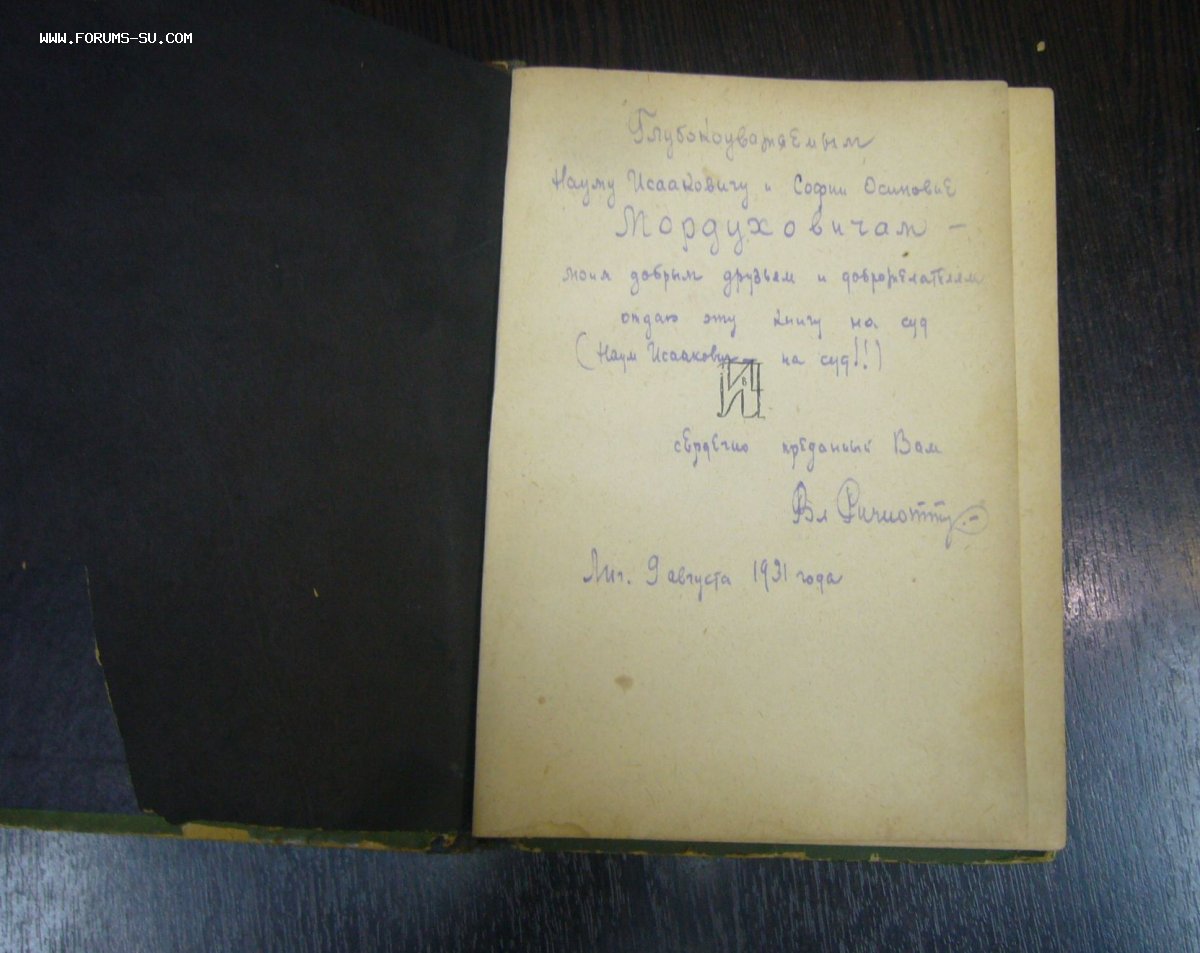 WWW.FORUMS-SU.COM
Глубокоуважаемым
Науму Исааковичу и Софии Осиповне
Мордуховичам –
моим добрым друзьям и доброжелателям
отдаю эту книгу на суд
(Наум Исаакович на суд!!)
сердечно преданный Вам
Вл Ричиотти
Лнг. 9 августа 1931 года